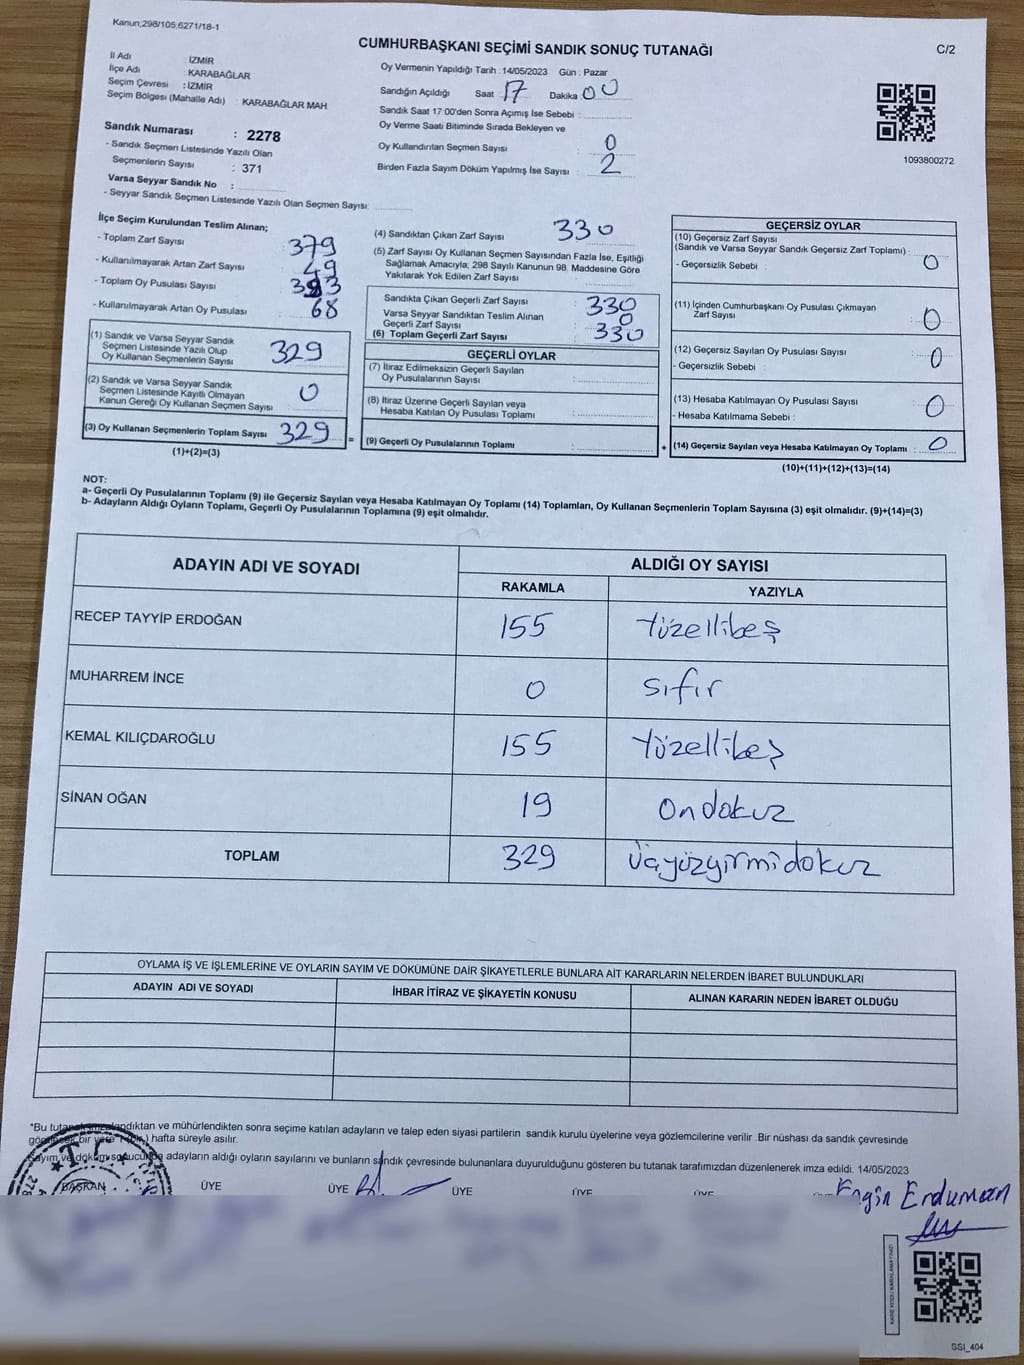 Kanun;298/105,6271/18-1
CUMHURBAŞKANI SEÇİMİ SANDIK SONUÇ TUTANAĞI
C/2
İl Adı : İZMİR
İlçe Adı : KARABAĞLAR
Seçim Çevresi : İZMİR
Seçim Bölgesi (Mahalle Adı) : KARABAĞLAR MAH
Sandık Numarası : 2278
- Sandık Seçmen Listesinde Yazılı Olan
Seçmenlerin Sayısı : 371
Varsa Seyyar Sandık No :
- Seyyar Sandık Seçmen Listesinde Yazılı Olan Seçmen Sayısı:
Oy Vermenin Yapıldığı Tarih :14/05/2023 Gün : Pazar
Sandığın Açıldığı Saat : 17 Dakika : 00
Sandık Saat 17:00'den Sonra Açımış İse Sebebi :
Oy Verme Saati Bitiminde Sırada Bekleyen ve
Oy Kullandırılan Seçmen Sayısı : 0
Birden Fazla Sayım Döküm Yapılmış İse Sayısı : 2
1093800272
İlçe Seçim Kurulundan Teslim Alınan;
- Toplam Zarf Sayısı : 379
- Kullanılmayarak Artan Zarf Sayısı : 49
- Toplam Oy Pusulası Sayısı :
- Kullanılmayarak Artan Oy Pusulası : 68
(1) Sandık ve Varsa Seyyar Sandık
Seçmen Listesinde Yazılı Olup
Oy Kullanan Seçmenlerin Sayısı : 329
(2) Sandık ve Varsa Seyyar Sandık
Seçmen Listesinde Kayıtlı Olmayan
Kanun Gereği Oy Kullanan Seçmen Sayısı : 0
(3) Oy Kullanan Seçmenlerin Toplam Sayısı : 329
(1)+(2)=(3)
(4) Sandıktan Çıkan Zarf Sayısı : 330
(5) Zarf Sayısı Oy Kullanan Seçmen Sayısından Fazla İse, Eşitliği
Sağlamak Amacıyla; 298 Sayılı Kanunun 98. Maddesine Göre
Yakılarak Yok Edilen Zarf Sayısı :
Sandıkta Çıkan Geçerli Zarf Sayısı : 330
Varsa Seyyar Sandıktan Teslim Alınan
Geçerli Zarf Sayısı : 0
(6) Toplam Geçerli Zarf Sayısı : 330
GEÇERLİ OYLAR
(7) İtiraz Edilmeksizin Geçerli Sayılan
Oy Pusulalarının Sayısı :
(8) İtiraz Üzerine Geçerli Sayılan veya
Hesaba Katılan Oy Pusulası Toplamı :
= (9) Geçerli Oy Pusulalarının Toplamı :
GEÇERSİZ OYLAR
(10) Geçersiz Zarf Sayısı
(Sandık ve Varsa Seyyar Sandık Geçersiz Zarf Toplamı) : 0
- Geçersizlik Sebebi :
(11) İçinden Cumhurbaşkanı Oy Pusulası Çıkmayan
Zarf Sayısı : 0
(12) Geçersiz Sayılan Oy Pusulası Sayısı : 0
- Geçersizlik Sebebi :
(13) Hesaba Katılmayan Oy Pusulası Sayısı : 0
- Hesaba Katılmama Sebebi :
+ (14) Geçersiz Sayılan veya Hesaba Katılmayan Oy Toplamı : 0
(10)+(11)+(12)+(13)=(14)
NOT:
a- Geçerli Oy Pusulalarının Toplamı (9) ile Geçersiz Sayılan veya Hesaba Katılmayan Oy Toplamı (14) Toplamları, Oy Kullanan Seçmenlerin Toplam Sayısına (3) eşit olmalıdır. (9)+(14)=(3)
b- Adayların Aldığı Oyların Toplamı, Geçerli Oy Pusulalarının Toplamına (9) eşit olmalıdır.
ADAYIN ADI VE SOYADI
ALDIĞI OY SAYISI
RAKAMLA YAZIYLA
RECEP TAYYİP ERDOĞAN 155 Yüzellibeş
MUHARREM İNCE 0 sıfır
KEMAL KILIÇDAROĞLU 155 Yüzellibeş
SİNAN OĞAN 19 Ondokuz
TOPLAM 329 Üçyüzyirmidokuz
OYLAMA İŞ VE İŞLEMLERİNE VE OYLARIN SAYIM VE DÖKÜMÜNE DAİR ŞİKAYETLERLE BUNLARA AİT KARARLARIN NELERDEN İBARET BULUNDUKLARI
ADAYIN ADI VE SOYADI İHBAR İTİRAZ VE ŞİKAYETİN KONUSU ALINAN KARARIN NEDEN İBARET OLDUĞU
*Bu tutanak imzalandıktan ve mühürlendikten sonra seçime katılan adayların ve talep eden siyasi partilerin sandık kurulu üyelerine veya gözlemcilerine verilir .Bir nüshası da sandık çevresinde
görünecek bir yere 1 (Bir) hafta süreyle asılır.
Sayım ve döküm sonucunda adayların aldığı oyların sayılarını ve bunların sandık çevresinde bulunanlara duyurulduğunu gösteren bu tutanak tarafımızdan düzenlenerek imza edildi. 14/05/2023
BAŞKAN ÜYE ÜYE ÜYE ÜYE ÜYE
Engin Erduman
KARE KODU KARALAMAYINIZ!
SSI_404